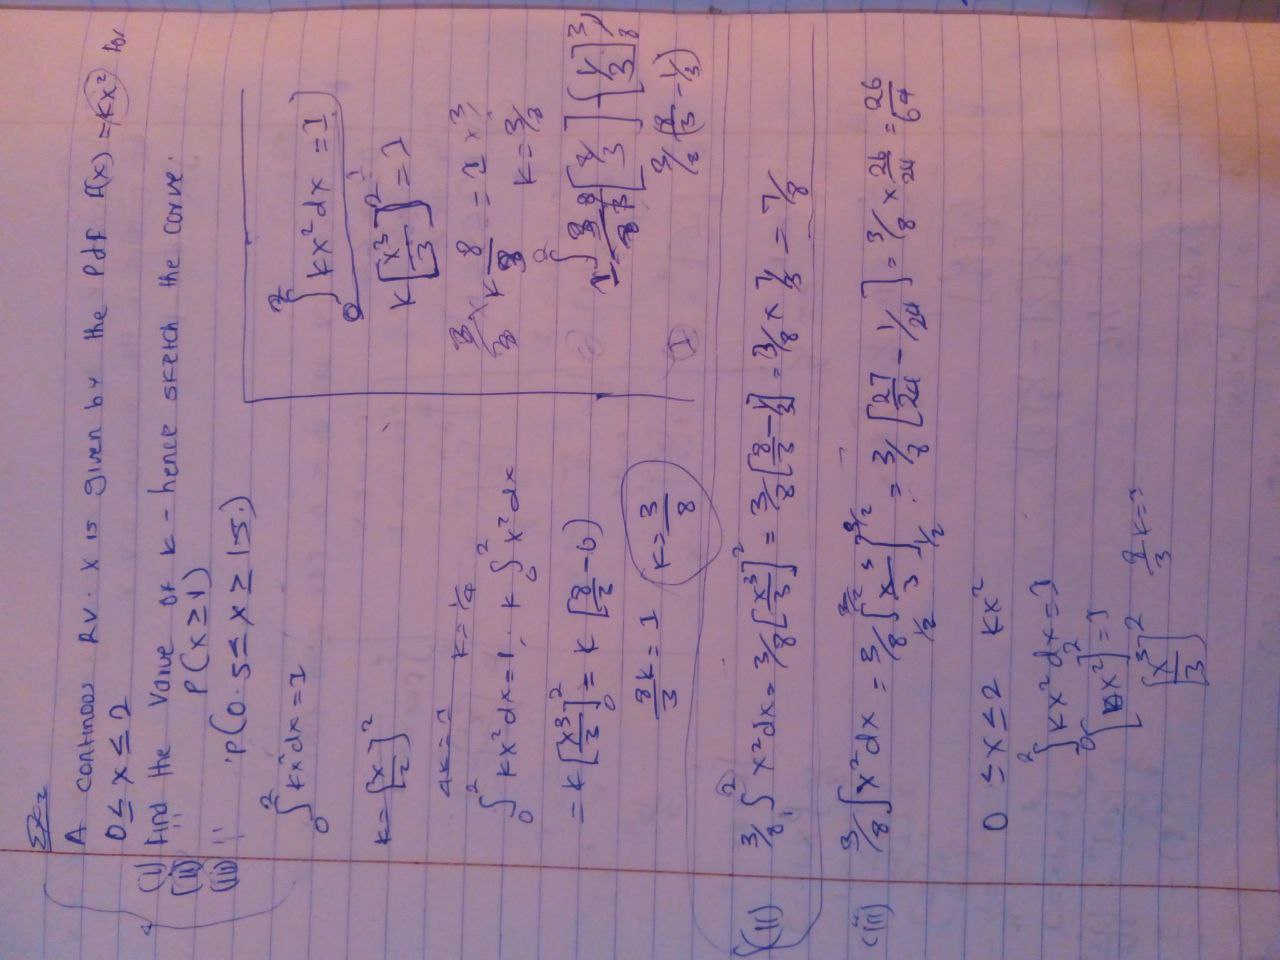 Ex2
A continoos RV. X is given by the Pdf f(x) = kx² for
0 ≤ x ≤ 2
(i) Find the value of k - hence sketch the curve.
(ii) '' P(x ≥ 1)
(iii) '' P(0.5 ≤ x ≥ 1.5.)
∫₀² kx² dx = 1
k = [x/2]²
4k = 1 k = 1/4
∫₀² kx² dx = 1, k ∫₀² x² dx
= k [x³/3]₀² = k [8/3 - 0)
8k/3 = 1 k = 3/8
∫₀² kx² dx = 1
k [x³/3]² = 1
k 8/3 = 1 × 3
k = 3/8
[8/3] - [1/3] 3/8
3/8 (8/3 - 1/3)
(ii) 3/8 ∫₁² x² dx = 3/8 [x³/3]² = 3/8 [8/3 - 1/3] = 3/8 × 7/3 = 7/8
(iii) 3/8 ∫ x² dx = 3/8 [x³/3] 3/2 1/2 = 3/8 [27/24 - 1/24] = 3/8 × 26/24 = 26/64
0 ≤ x ≤ 2 kx²
∫₀² kx² dx = 1
[kx²]² = 1
[x³/3]² 8/3 k = 1